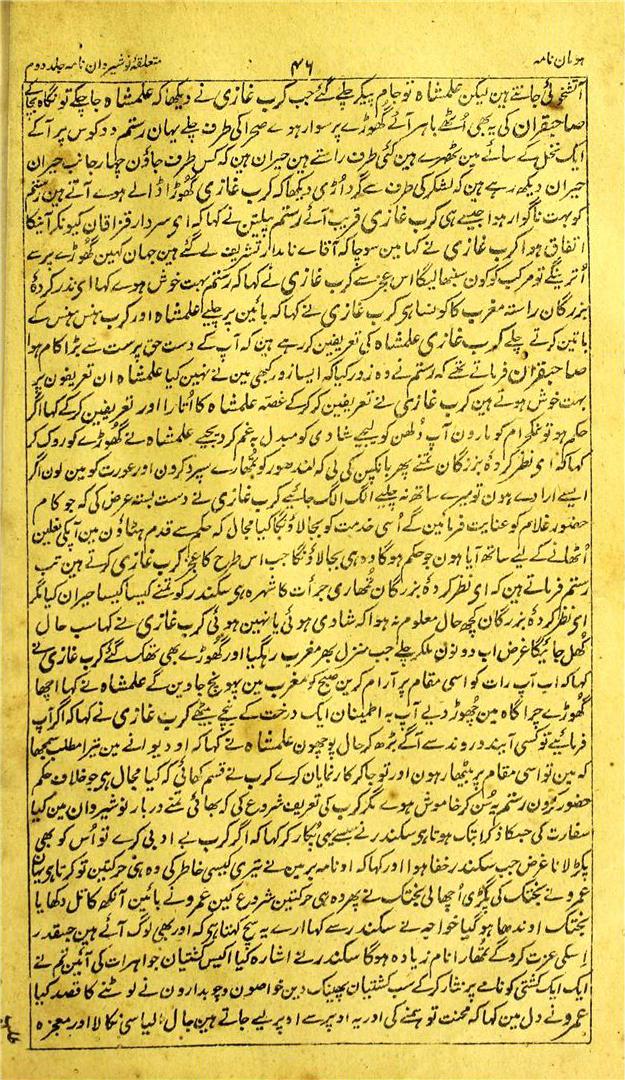 ہومان نامہ
۴۶
متعلقۂ نوشیروان نامہ جلد دوم
آتشخوئی جانتے ہین لیکن علمشاہ توجام پیکر چلے گئے جب کرب غازی نے دیکھا کہ علمشاہ جا چکے تو نگاہ بچا کے
صاحبقران کی یہ بھی اُٹھے باہر آئے گھوڑے پر سوار ہوے صحرا کی طرف چلے یہان رستم دو کوس پر آکے
ایک نخل کے سائے مین ٹھہرے ہین کئی طرف راستے ہین حیران ہین کہ کس طرف جاؤن چہار جانب حیران
حیران دیکھ رہے ہین کہ لشکر کی طرف سے گرد اُڑی دیکھا کہ کرب غازی گھوڑا ڈالے ہوے آتے ہین رستم
کو بہت ناگوار ہوا جیسے ہی کرب غازی قریب آئے رستم پیلتن نے کہا کہ ای سردار قزاقان کیونکر آنیکا
اتفاق ہوا کرب غازی نے کہا مین سوچا کہ آقاے نامدار تشریف لے گئے ہین جہان کہین گھوڑے پر سے
اُترینگے تو مرکب کو کون سنبھالیگا اس عجز سے کرب غازی نے کہا کہ رستم بہت خوش ہوے کہا ای نظر کردۂ
بزرگان راستہ مغرب کا کونسا ہی کرب غازی نے کہا کہ بائین پر چلیے علمشاہ اور کرب ہنس ہنس کے
باتین کرتے چلے کرب غازی علمشاہ کی تعریفین کر رہے ہین کہ آپ کے دست حق پرست سے بڑا کام ہوا
صاحبقران فرماتے تھے کہ رستم نے وہ زور کیا کہ ایسا زور کبھی مین نے نہین کیا علمشاہ ان تعریفون پر
بہت خوش ہوتے ہین کرب غازی نے تعریفین کر کرکے غصہ علمشاہ کا اُتارا اور تعریفین کرکے کہا اگر
حکم ہو تو نمکحرام کو مارون آپ دُلھن کو لیجیے شادی کو مبدل بہ غم کر دیجیے علمشاہ نے گھوڑے کو روک کر
کہا کہ ای نظر کردۂ بزرگان تمنے پھر بانکپن کی لی کہ لندھور کو تمھارے سپرد کرون اور عورت کو مین لون اگر
ایسے ارادے ہون تو میرے ساتھ نہ چلیے الگ الگ جائیے کرب غازی نے دست بستہ عرض کی کہ جو کام
حضور غلام کو عنایت فرمائین گے اُسی خدمت کو بجالاؤنگا کیا مجال کہ حکم سے قدم ہٹاؤن مین آپکی نعلین
اُٹھانے کے لیے ساتھ آیا ہون جو حکم ہوگا وہ ہی بجالاؤنگا جب اس طرح کا عجز کرب غازی کرتے ہین تب
رستم فرماتے ہین کہ ای نظر کردۂ بزرگان تمھاری جرأت کا شہرہ ہی سکندر کو تمنے کیسا کیسا حیران کیا مگر
ای نظر کردۂ بزرگان کچھ حال معلوم نہ ہوا کہ شادی ہوئی یا نہین ہوئی کرب غازی نے کہا سب حال
کھل جائیگا غرض اب دونون ملکر چلے جب منزل بھر مغرب رہگیا اور گھوڑے بھی تھک گئے کرب غازی نے
کہا کہ اب آپ رات کو اسی مقام پر آرام کرین صبح کو مغرب مین پہونچ جاوین گے علمشاہ نے کہا اچھا
گھوڑے چراگاہ مین چھوڑ دیے آپ بہ اطمینان ایک درخت کے نیچے بیٹھے کرب غازی نے کہا کہ اگر آپ
فرمائیے تو کسی آیند و روند سے آگے بڑھ کر حال پوچھون علمشاہ نے کہا کہ او دیوانے مین تیرا مطلب سمجھا
کہ مین تو اسی مقام پر بیٹھا رہون اور تو جا کر کار نمایان کرے کرب نے قسم کھائی کہ کیا مجال ہی جو خلاف حکم
حضور کرون رستم یہ سُن کر خاموش ہوے مگر کرب کی تعریف شروع کی کہ بھائی تمنے دربار نوشیروان مین کیا
سفارت کی جسکا ذکر اتبک ہوتا ہی سکندر نے جیسے ہی پکار کر کہا کہ اگر کرب بے ادبی کرے تو اُس کو بھی
پکڑ لانا غرض جب سکندر خفا ہوا اور کہا کہ او نامہ بر مین نے تیری کیسی خاطر کی وہ ہی حرکتین تو کرتا ہی یہان
عمرو نے بختک کی پگڑی اُچھالی بختک نے پھر وہ ہی حرکتین شروع کین عمرو نے بائین آنکھ کا تل دکھایا
بختک اوندھا ہو گیا خواجہ نے سکندر سے کہا ارے یہ سچ کہنا ہی کہ اور بھی لوگ آئے ہین جسقدر
اِسکی عزت کروگے تمھارا نام زیادہ ہوگا سکندر نے اشارہ کیا اکیس کشتیان جواہرات کی آئین تم نے
ایک ایک کشتی کو نامے پر نثار کرکے سب کشتیان پھینک دین خواصون و چوبدارون نے لوٹنے کا قصد کیا
عمرو نے دل مین کہا کہ محنت تو ہمنے کی اور یہ اوپر سے اوپر لیے جاتے ہین جال الیاسی نکالا اور معجزہ